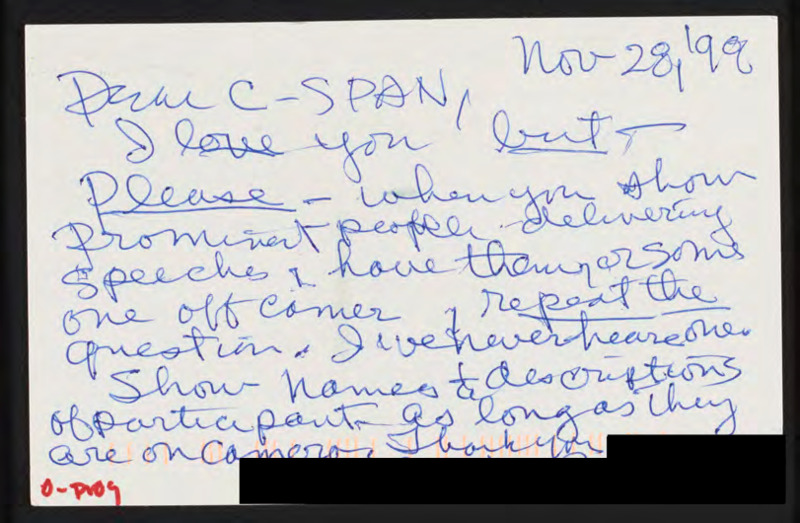 Nov 28, '98
Dear C-SPAN,
I love you but -
Please - when you show
prominent people delivering
speeches, have them, or some
one off camer, repeat the
question. I've never heard one.
Show names & descriptions
of participant as long as they
are on camera. Thank you
O-prog